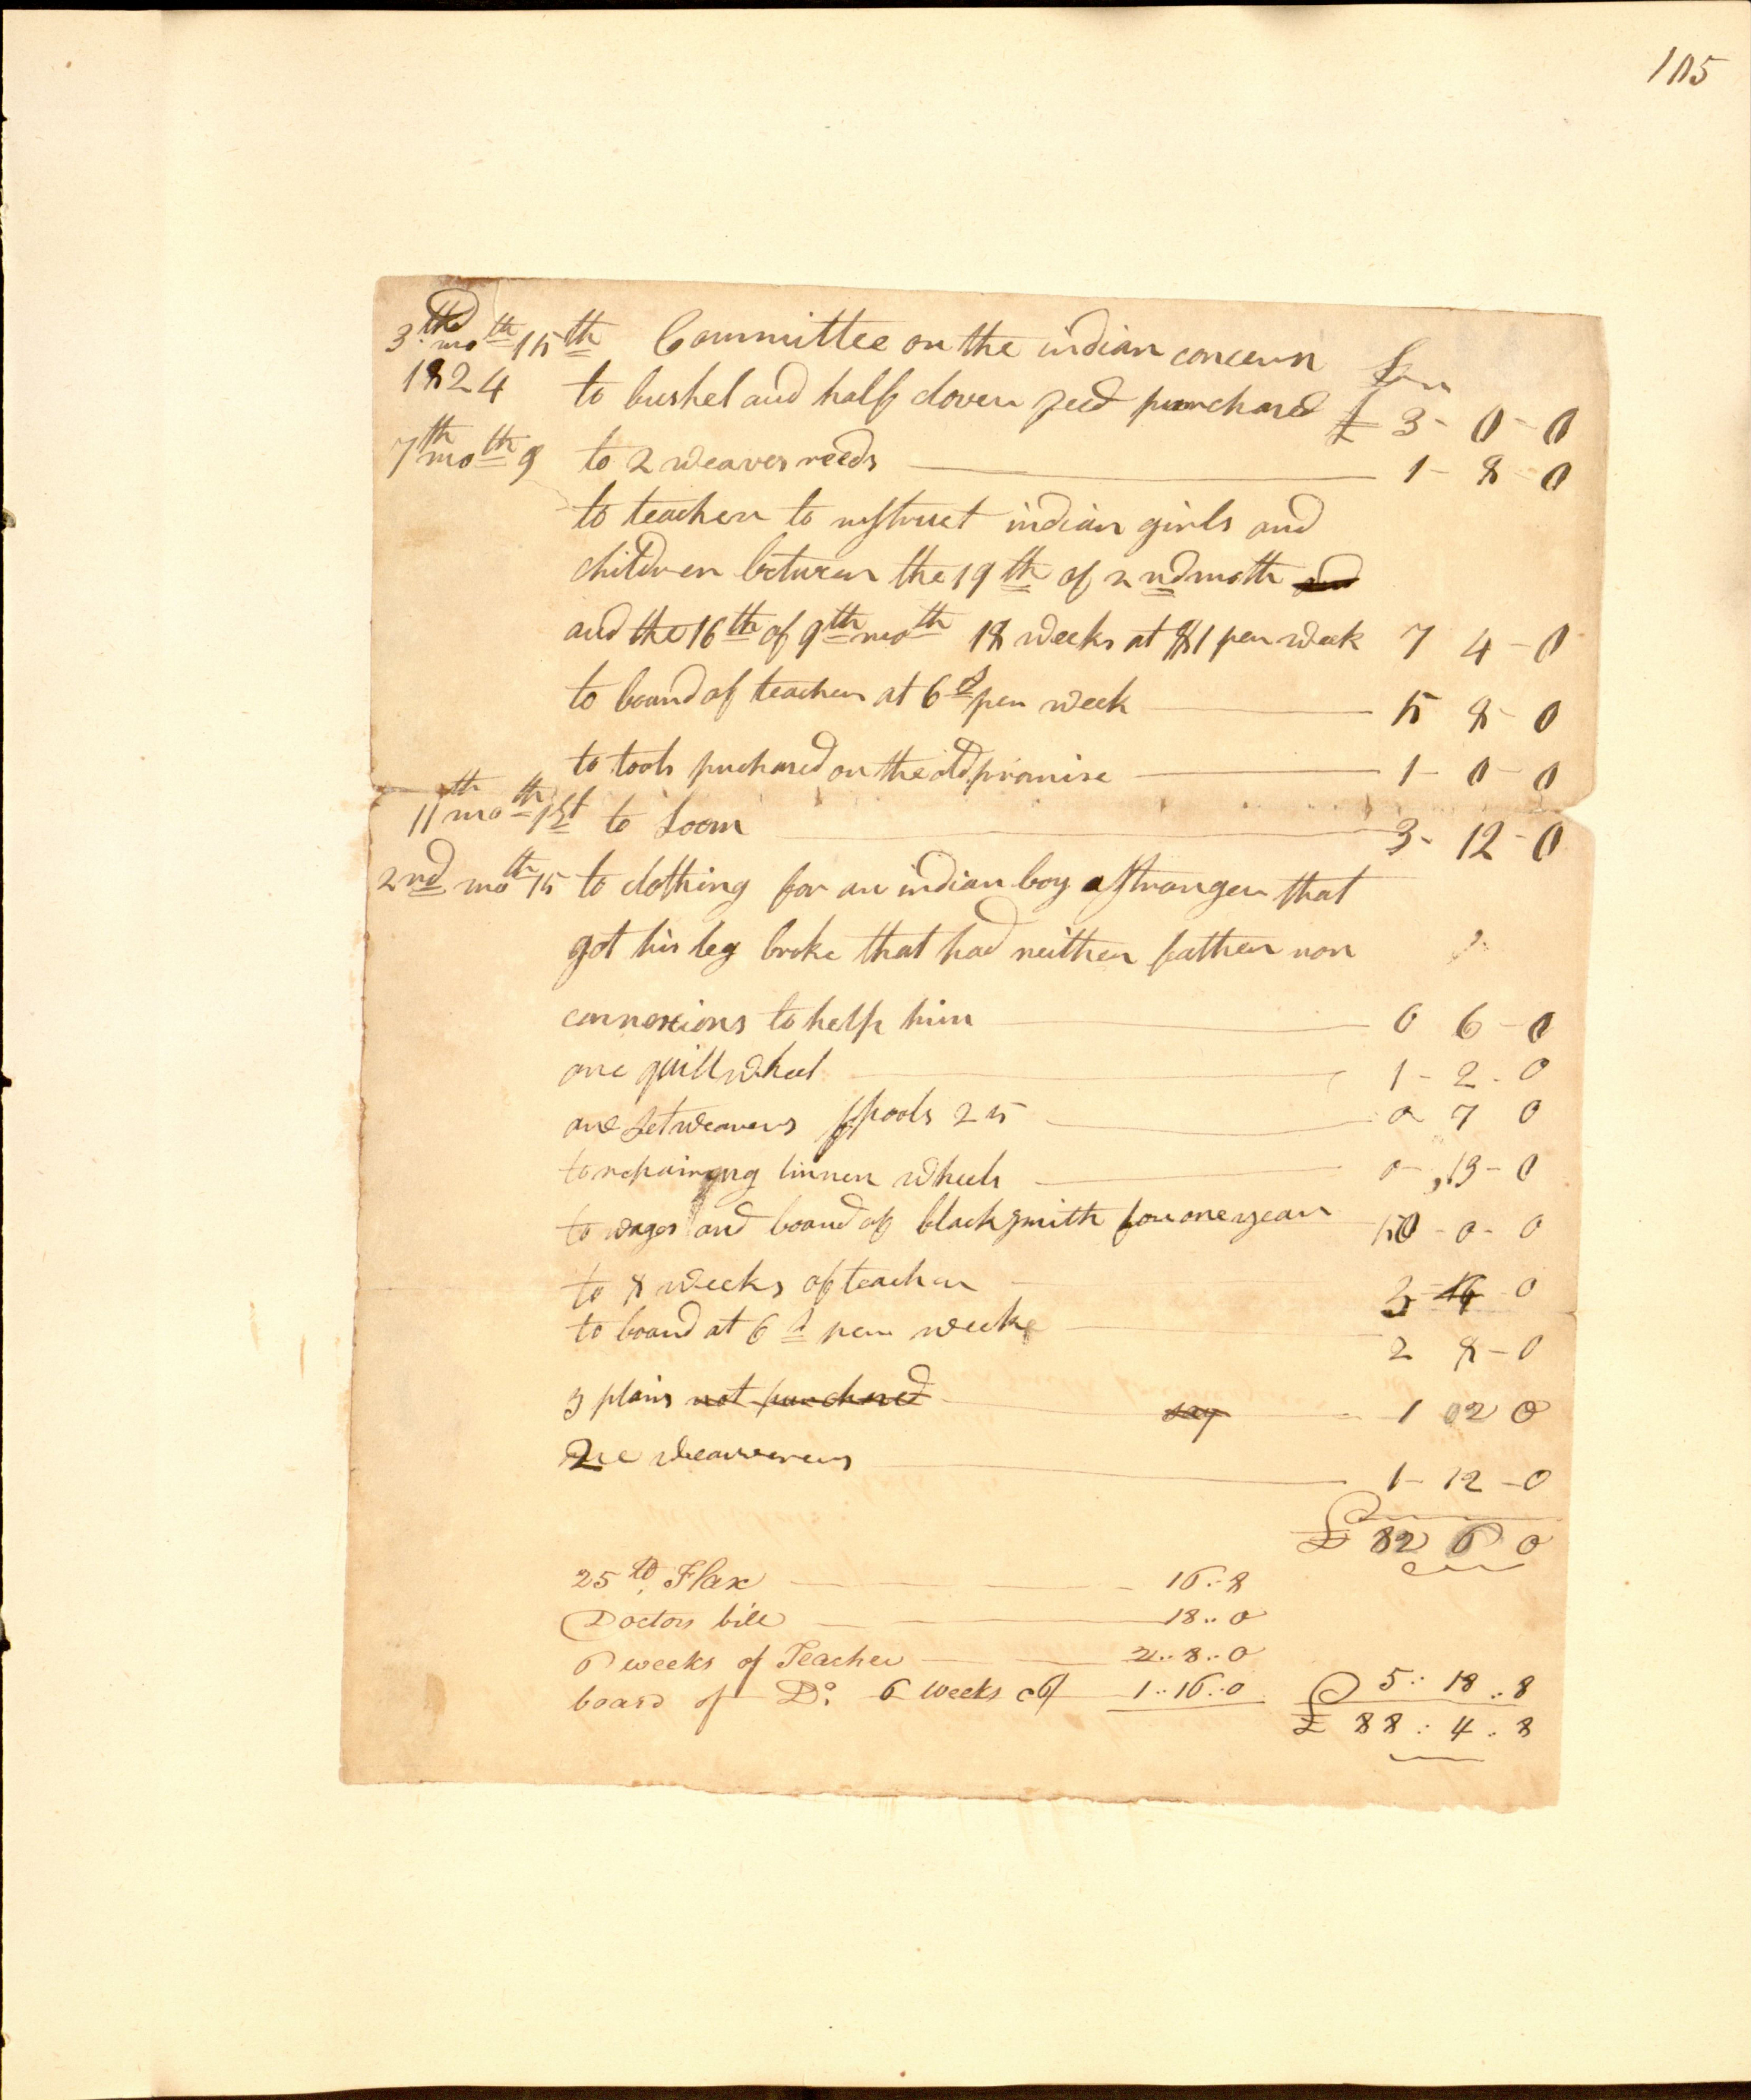 105
3rd mo th 15th Committee on the indian concern Dr
1824 to bushel and half clover seed purchased £ 3 - 0 - 0
7th mo th 9 to 2 weavers reeds 1 - 8 - 0
to teacher to instruct indian girls and
children between the 19th of 2nd moth and
and the 16th of 9th moth 18 weeks at $1 per week 7 4 - 0
to board of teacher at 6s per week 5 8 - 0
to tools puchased on the old promise 1 - 0 - 0
11th mo th 1st to Loom 3 - 12 - 0
2nd mo th 15 to clothing for an indian boy a stranger that
got his leg broke that had neither father nor
connexions to help him 0 6 - 0
one quill wheel 1 - 2 - 0
one set weavers spools 25 0 7 0
to repairing linnen wheels 0 - 13 - 0
to wages and board of blacksmith for one year 50 - 0 - 0
to 8 weeks of teacher 3 - 4 - 0
to board at 6s per weeke 2 8 - 0
3 plains not purchased say 1 02 0
weavverers 1 - 12 - 0
£ 82 6 0
25 lb Flax 16 .. 8
Doctors bill 18 .. 0
6 weeks of Teacher 2 .. 8 .. 0
board of Do. 6 weeks @ 6/ 1 .. 16 .. 0 £ 5 : 18 .. 8
£ 88 : 4 : 8